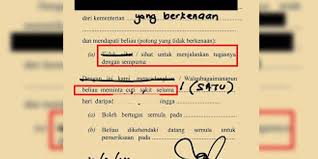 dari kementerian yang berkenaan
dan mendapati beliau (potong yang tidak berkenaan):
(a) Tidak sihat / sihat untuk menjalankan tugasnya
dengan sempurna
Dengan ini kami / Walaubagaimanapun
beliau meminta cuti sakit selama 1 (SATU)
hari daripada hingga
(a) Boleh bertugas semula pada
(b) Beliau dikehendaki datang semula untuk
pemeriksaan pada